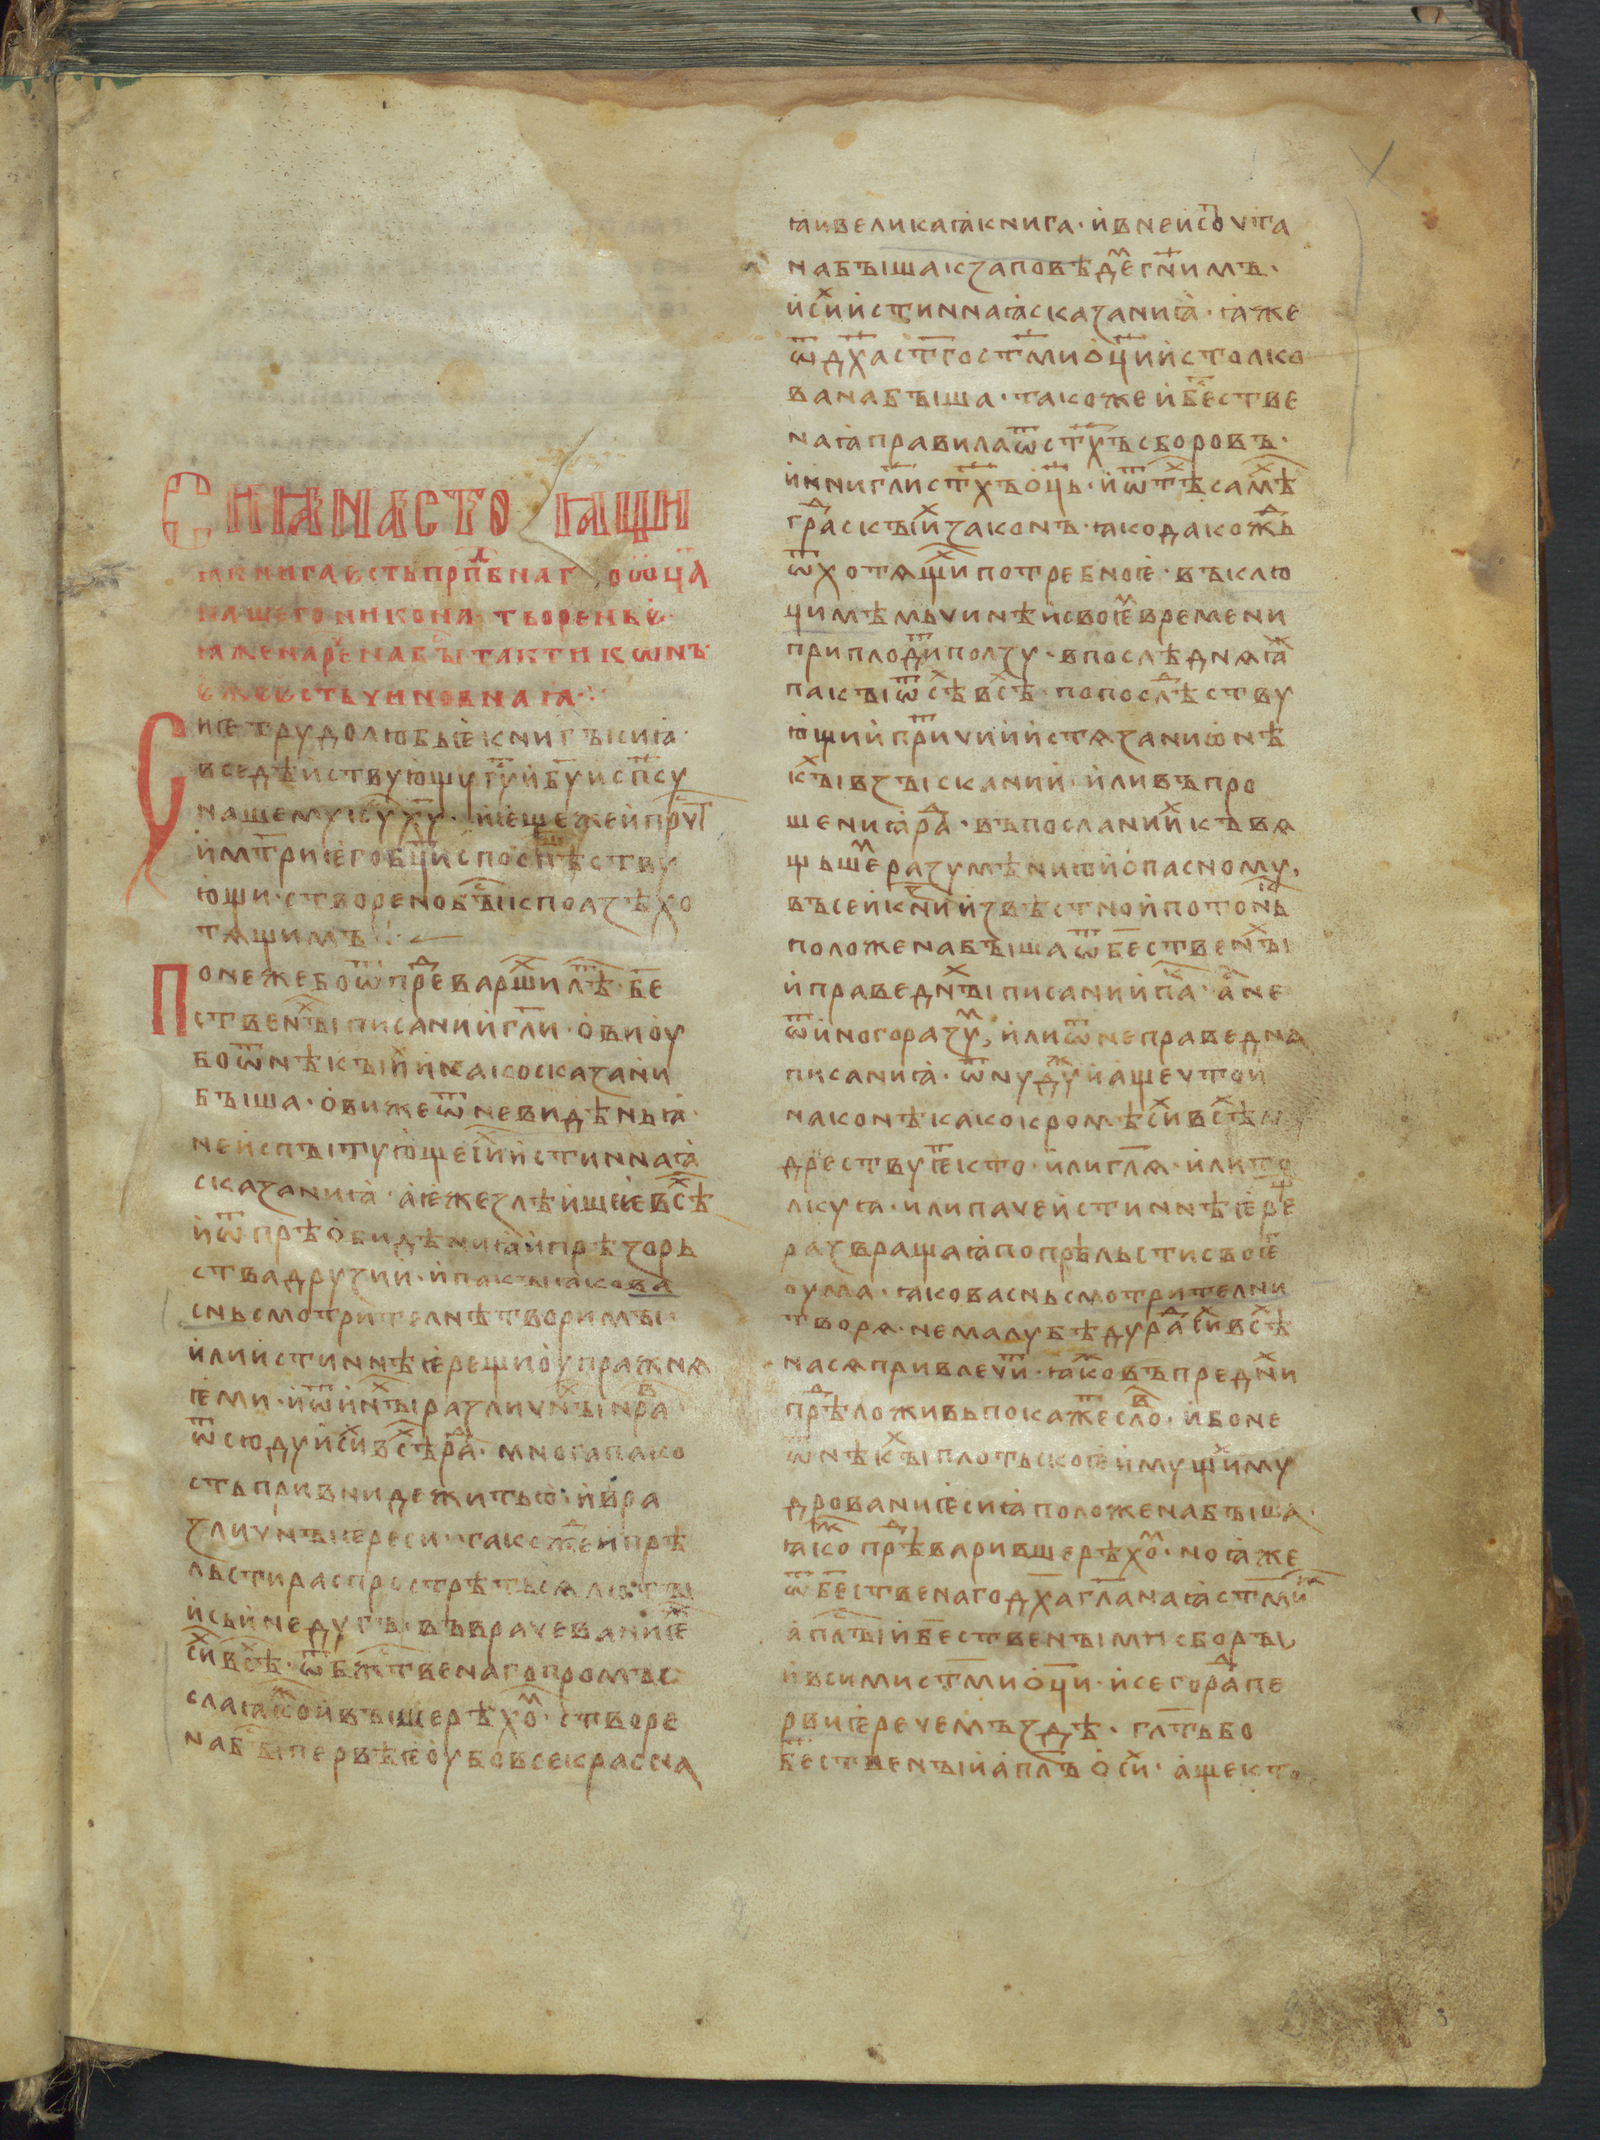 Сиꙗ настоꙗщи
ꙗ книга есть прпⷣбнаг ѡ ѿца
нашего никона творенье
ꙗже нарⷱена быⷭ тактиконъ
еже есть чиновнаꙗ
Сиѥ трудолюбьѥ книгъ сиꙗ
вседѣиствующу гⷭу и б҃у и сп҃су
нашему іс҃у х҃у и ѥще же и прⷱт
и мт҃ри ѥго вⷭци споспѣству
ющи створено быⷭ к ползѣ хо
тящимъ
Понеже бо ѿ преⷣваршиⷯ лѣⷮ бе
ственыⷯ писании гл҃и ови оу
бо ѿ нѣкыиⷯ инако сказани
быша ови же ѿ невидѣньꙗ
не испытующе сиⷯ истиннаꙗ
сказаниꙗ а ѥже злѣишеѥ всѣⷯ
и ѿ прѣобидѣниꙗ и прѣзорь
ства друзии и пакы ꙗко ба
снь смотрителнѣ творимы
или истиннѣѥ рещи оупражнꙗ
ѥми и ѿ иныⷯ различныⷯ нраⷡ
ѿсюду и сиⷯ всѣⷯ раⷣ многа пако
сть привниде житью и вра
зличныꙗ ереси такоже и прѣ
льсти распрострѣтьсꙗ люты
и сьи недугъ въврачеваниѥⷨ
сиⷯ всѣⷯ ѿ бжⷭтвенаго промы
сла ꙗкоⷤ и выше рѣхоⷨ створе
на быⷭ первѣѥ оубо все краснаꙗ
ꙗи великаꙗ книга и в неи соⷱта
на быша к заповѣдеⷨ гⷭнимъ
и сиⷯ истиннаꙗ сказаниꙗ ꙗже
ѿ дх҃а ст҃го ст҃ми оц҃и истолко
вана быша такоже и бⷭестве
наꙗ правила ѿ ст҃хъ сборовъ
и книги ст҃хъ оц҃ь и ѿ тѣⷯ самѣⷯ
граⷣскыиⷯ законъ ꙗко да кожⷣь
ѿ хотящиⷯ потребноѥ въ клю
чимѣмь чинѣ и своѥⷨ времени
приплодиⷮ ползу впослѣднꙗꙗⷤ
пакы ѿ сѣⷯ всѣⷯ по послѣⷣству
ющии причии истязании онѣ
кыⷯ взыскании или въпро
шениꙗ раⷣ въ посланииⷯ къ вя
щьшеⷨ разумѣнию и опасному
въ сеи книзⷥ извѣстнои по тонь
положена быша ѿ бⷭественыⷯ
и праведныⷯ писании пⷭа а не
ѿ иного разуⷨ или ѿ неправедна
писаниꙗ ѿнудуⷤ и аще чтои
наконѣкако кромѣ сиⷯ всѣⷯ м
дрествуѥⷮ кто или гл҃я или то
лкуꙗ или паче истиннѣѥ реⷳ
развращаꙗ по прѣльсти своѥⷢ
оума ꙗко баснь смотрителни
творя не малу бѣду раⷣ сиⷯ всѣⷯ
на ся привлечиⷮ ꙗкоⷤ въ предниⷯ
прѣⷣложивь покажеⷮ слоⷡ ибо не
ѿ нѣкыⷯ плотьскоѥ имущиⷯ му
дрованиѥ сиꙗ положена быша
ꙗкоⷤ прѣⷣваривше рѣхоⷨ но ꙗже
ѿ бⷭественаго дх҃а гл҃анаꙗ ст҃миⷨ
апⷭлы и бⷭествеными сборы
и всими ст҃ми оц҃и и сего раⷣ пе
рвиѥ речемъ здѣ гл҃ть бо
бⷭественыи апл҃ъ о сиⷯ аще кто